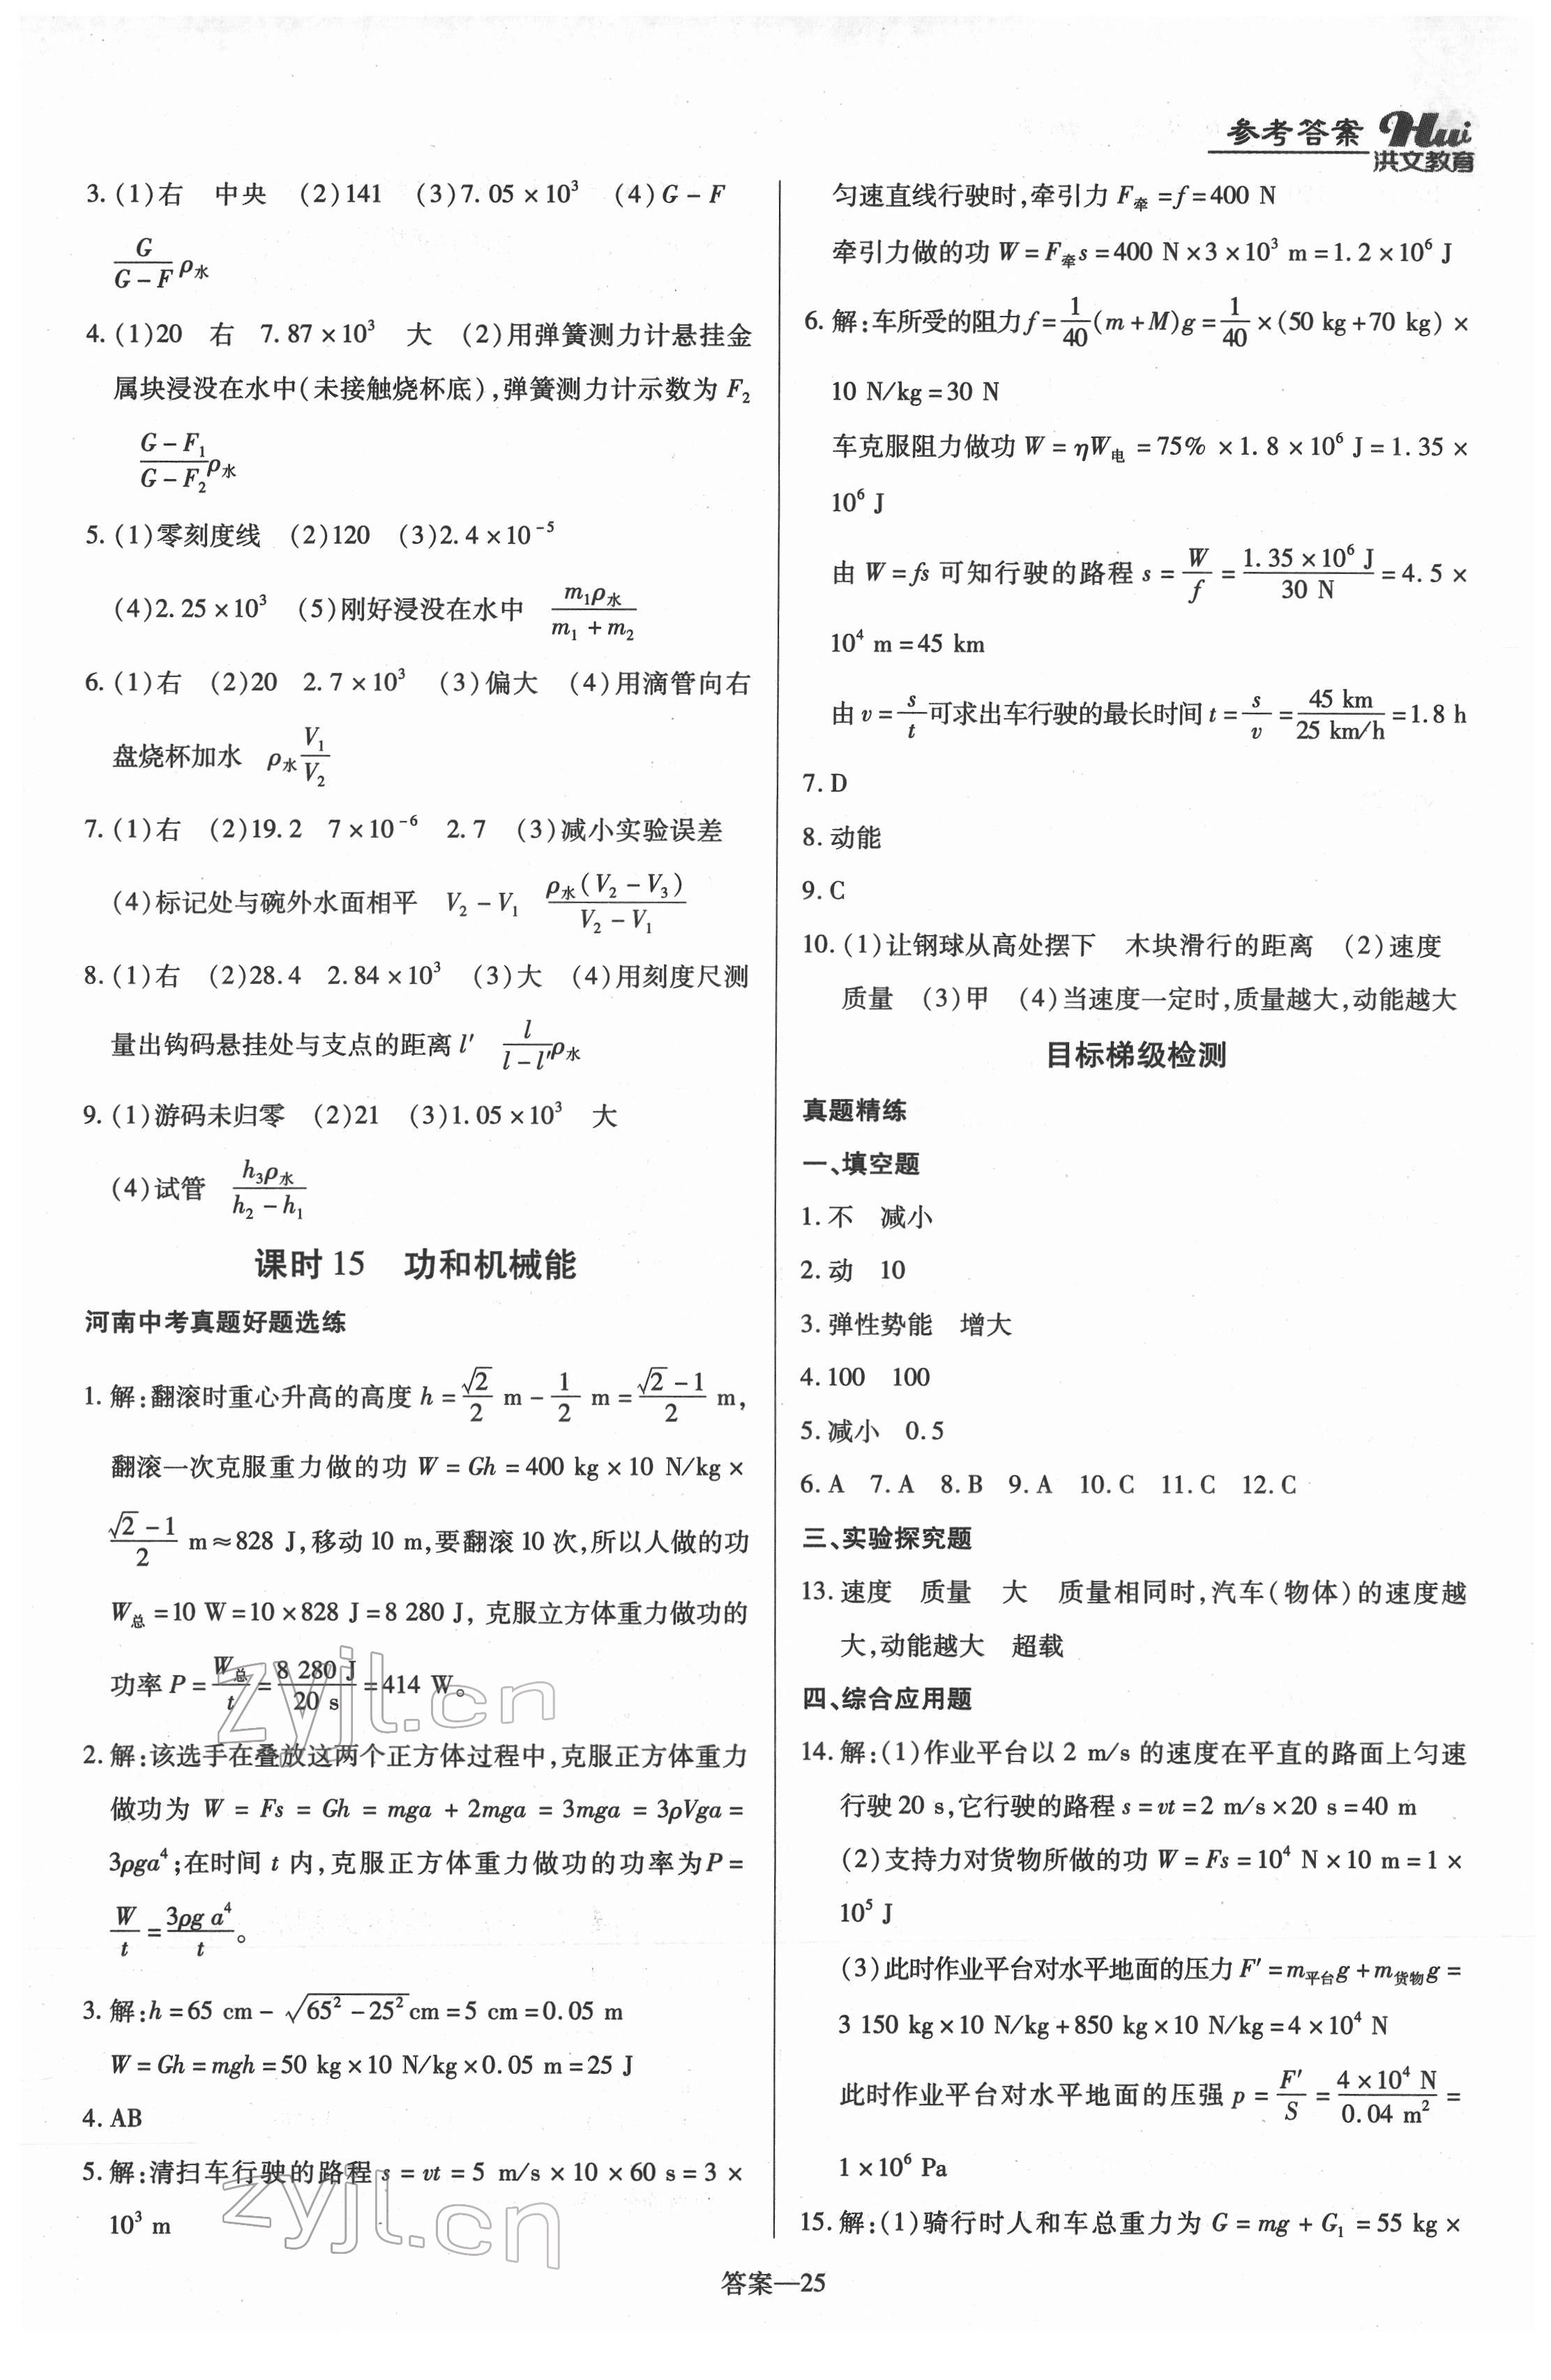 参考答案 Hui
洪文教育
3. (1)右 中央 (2)141 (3)7.05×10³ (4)G-F
G/(G-F) ρ水
4. (1)20 右 7.87×10³ 大 (2)用弹簧测力计悬挂金
属块浸没在水中(未接触烧杯底),弹簧测力计示数为 F₂
(G-F₁)/(G-F₂) ρ水
5. (1)零刻度线 (2)120 (3)2.4×10⁻⁵
(4)2.25×10³ (5)刚好浸没在水中 m₁ρ水/(m₁+m₂)
6. (1)右 (2)20 2.7×10³ (3)偏大 (4)用滴管向右
盘烧杯加水 ρ水 V₁/V₂
7. (1)右 (2)19.2 7×10⁻⁶ 2.7 (3)减小实验误差
(4)标记处与碗外水面相平 V₂-V₁ ρ水(V₂-V₃)/(V₂-V₁)
8. (1)右 (2)28.4 2.84×10³ (3)大 (4)用刻度尺测
量出钩码悬挂处与支点的距离 l′ l/(l-l′) ρ水
9. (1)游码未归零 (2)21 (3)1.05×10³ 大
(4)试管 h₃ρ水/(h₂-h₁)
课时 15 功和机械能
河南中考真题好题选练
1. 解:翻滚时重心升高的高度 h=√2/2 m-1/2 m=(√2-1)/2 m,
翻滚一次克服重力做的功 W=Gh=400 kg×10 N/kg×
(√2-1)/2 m≈828 J,移动 10 m,要翻滚 10 次,所以人做的功
W总=10 W=10×828 J=8 280 J, 克服立方体重力做功的
功率 P=W总/t=8 280 J/20 s=414 W。
2. 解:该选手在叠放这两个正方体过程中,克服正方体重力
做功为 W=Fs=Gh=mga+2mga=3mga=3ρVga=
3ρga⁴;在时间 t 内,克服正方体重力做功的功率为P=
W/t=3ρg a⁴/t。
3. 解:h=65 cm-√(65²-25²) cm=5 cm=0.05 m
W=Gh=mgh=50 kg×10 N/kg×0.05 m=25 J
4. AB
5. 解:清扫车行驶的路程 s=vt=5 m/s×10×60 s=3×
10³ m
匀速直线行驶时,牵引力 F牵=f=400 N
牵引力做的功 W=F牵s=400 N×3×10³ m=1.2×10⁶ J
6. 解:车所受的阻力 f=1/40(m+M)g=1/40×(50 kg+70 kg)×
10 N/kg=30 N
车克服阻力做功 W=ηW电=75%×1.8×10⁶ J=1.35×
10⁶ J
由 W=fs 可知行驶的路程 s=W/f=1.35×10⁶ J/30 N=4.5×
10⁴ m=45 km
由 v=s/t可求出车行驶的最长时间 t=s/v=45 km/25 km/h=1.8 h
7. D
8. 动能
9. C
10. (1)让钢球从高处摆下 木块滑行的距离 (2)速度
质量 (3)甲 (4)当速度一定时,质量越大,动能越大
目标梯级检测
真题精练
一、填空题
1. 不 减小
2. 动 10
3. 弹性势能 增大
4. 100 100
5. 减小 0.5
6. A 7. A 8. B 9. A 10. C 11. C 12. C
三、实验探究题
13. 速度 质量 大 质量相同时,汽车(物体)的速度越
大,动能越大 超载
四、综合应用题
14. 解:(1)作业平台以 2 m/s 的速度在平直的路面上匀速
行驶 20 s,它行驶的路程 s=vt=2 m/s×20 s=40 m
(2)支持力对货物所做的功 W=Fs=10⁴ N×10 m=1×
10⁵ J
(3)此时作业平台对水平地面的压力 F′=m平台g+m货物g=
3 150 kg×10 N/kg+850 kg×10 N/kg=4×10⁴ N
此时作业平台对水平地面的压强 p=F′/S=4×10⁴ N/0.04 m²=
1×10⁶ Pa
15. 解:(1)骑行时人和车总重力为 G=mg+G₁=55 kg×
答案—25
zyjl.cn
zyjl.cn